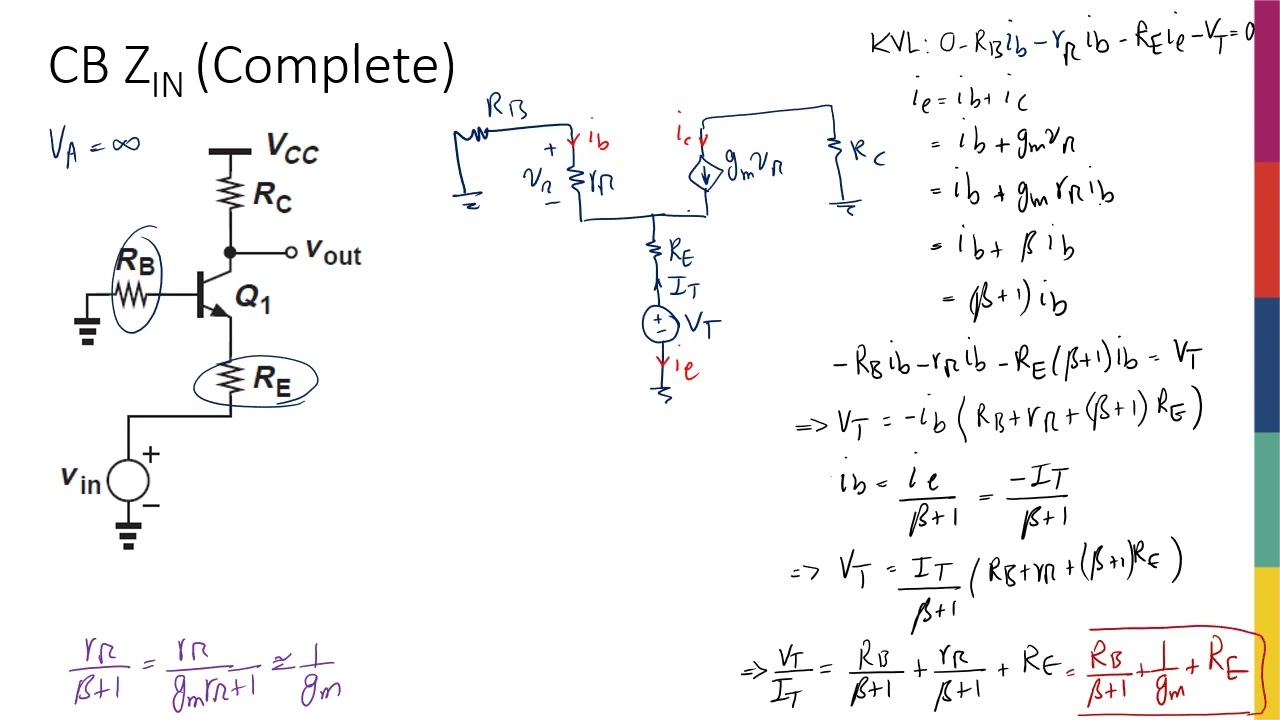 CB Z_IN (Complete)
V_A = ∞
V_CC
R_C
v_out
R_B
Q_1
R_E
v_in
+
−
R_B
i_b
+
v_π
−
r_π
i_c
g_m v_π
R_C
R_E
I_T
+
−
V_T
i_e
KVL: 0 - R_B i_b - r_π i_b - R_E i_e - V_T = 0
i_e = i_b + i_c
= i_b + g_m v_π
= i_b + g_m r_π i_b
= i_b + β i_b
= (β+1) i_b
-R_B i_b - r_π i_b - R_E (β+1) i_b = V_T
=> V_T = -i_b (R_B + r_π + (β+1) R_E)
i_b = i_e/(β+1) = -I_T/(β+1)
=> V_T = I_T/(β+1) (R_B + r_π + (β+1) R_E)
=> V_T/I_T = R_B/(β+1) + r_π/(β+1) + R_E = R_B/(β+1) + 1/g_m + R_E
r_π/(β+1) = r_π/(g_m r_π + 1) ≅ 1/g_m